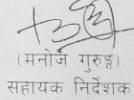 (मनोज गुरुङ)
सहायक निर्देशक